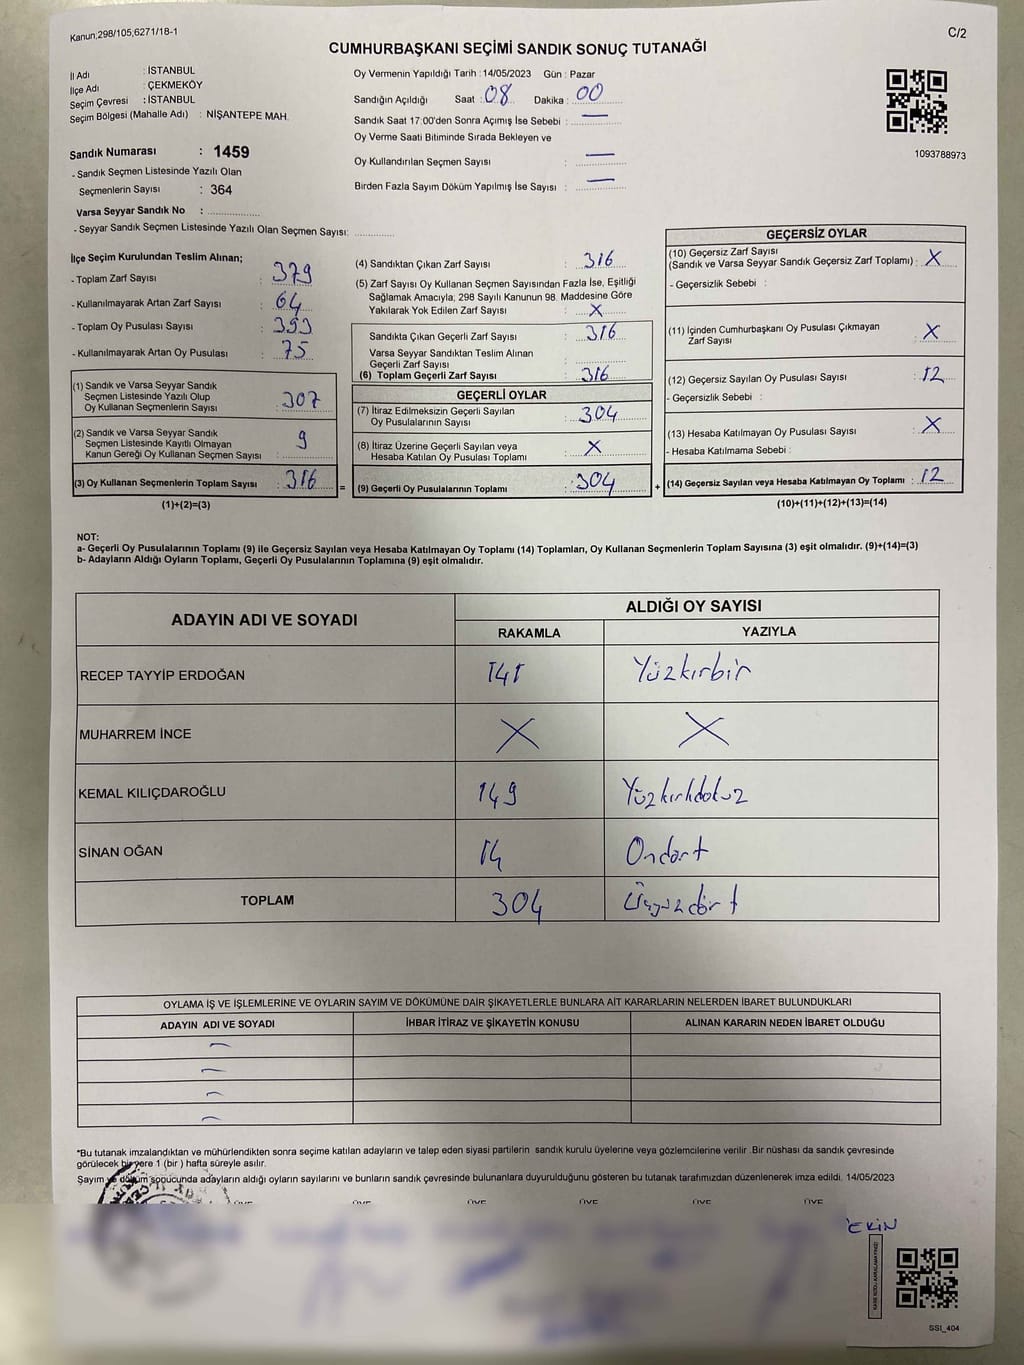 Kanun:298/105,6271/18-1
C/2
CUMHURBAŞKANI SEÇİMİ SANDIK SONUÇ TUTANAĞI
İl Adı : İSTANBUL
İlçe Adı : ÇEKMEKÖY
Seçim Çevresi : İSTANBUL
Seçim Bölgesi (Mahalle Adı) : NİŞANTEPE MAH.
Sandık Numarası : 1459
- Sandık Seçmen Listesinde Yazılı Olan
Seçmenlerin Sayısı : 364
Varsa Seyyar Sandık No :
- Seyyar Sandık Seçmen Listesinde Yazılı Olan Seçmen Sayısı:
Oy Vermenin Yapıldığı Tarih : 14/05/2023 Gün : Pazar
Sandığın Açıldığı Saat : 08 Dakika : 00
Sandık Saat 17:00'den Sonra Açımış İse Sebebi : —
Oy Verme Saati Bitiminde Sırada Bekleyen ve
Oy Kullandırılan Seçmen Sayısı : —
Birden Fazla Sayım Döküm Yapılmış İse Sayısı : —
1093788973
İlçe Seçim Kurulundan Teslim Alınan;
- Toplam Zarf Sayısı : 379
- Kullanılmayarak Artan Zarf Sayısı : 64
- Toplam Oy Pusulası Sayısı : 393
- Kullanılmayarak Artan Oy Pusulası : 75
(1) Sandık ve Varsa Seyyar Sandık
Seçmen Listesinde Yazılı Olup
Oy Kullanan Seçmenlerin Sayısı : 307
(2) Sandık ve Varsa Seyyar Sandık
Seçmen Listesinde Kayıtlı Olmayan
Kanun Gereği Oy Kullanan Seçmen Sayısı : 9
(3) Oy Kullanan Seçmenlerin Toplam Sayısı : 316
(1)+(2)=(3)
=
(4) Sandıktan Çıkan Zarf Sayısı : 316
(5) Zarf Sayısı Oy Kullanan Seçmen Sayısından Fazla İse, Eşitliği
Sağlamak Amacıyla; 298 Sayılı Kanunun 98. Maddesine Göre
Yakılarak Yok Edilen Zarf Sayısı : X
Sandıkta Çıkan Geçerli Zarf Sayısı : 316
Varsa Seyyar Sandıktan Teslim Alınan
Geçerli Zarf Sayısı :
(6) Toplam Geçerli Zarf Sayısı : 316
GEÇERLİ OYLAR
(7) İtiraz Edilmeksizin Geçerli Sayılan
Oy Pusulalarının Sayısı : 304
(8) İtiraz Üzerine Geçerli Sayılan veya
Hesaba Katılan Oy Pusulası Toplamı : X
(9) Geçerli Oy Pusulalarının Toplamı : 304
+
GEÇERSİZ OYLAR
(10) Geçersiz Zarf Sayısı
(Sandık ve Varsa Seyyar Sandık Geçersiz Zarf Toplamı) : X
- Geçersizlik Sebebi :
(11) İçinden Cumhurbaşkanı Oy Pusulası Çıkmayan
Zarf Sayısı : X
(12) Geçersiz Sayılan Oy Pusulası Sayısı : 12
- Geçersizlik Sebebi :
(13) Hesaba Katılmayan Oy Pusulası Sayısı : X
- Hesaba Katılmama Sebebi :
(14) Geçersiz Sayılan veya Hesaba Katılmayan Oy Toplamı : 12
(10)+(11)+(12)+(13)=(14)
NOT:
a- Geçerli Oy Pusulalarının Toplamı (9) ile Geçersiz Sayılan veya Hesaba Katılmayan Oy Toplamı (14) Toplamları, Oy Kullanan Seçmenlerin Toplam Sayısına (3) eşit olmalıdır. (9)+(14)=(3)
b- Adayların Aldığı Oyların Toplamı, Geçerli Oy Pusulalarının Toplamına (9) eşit olmalıdır.
ADAYIN ADI VE SOYADI ALDIĞI OY SAYISI
RAKAMLA YAZIYLA
RECEP TAYYİP ERDOĞAN 141 Yüzkırbir
MUHARREM İNCE X X
KEMAL KILIÇDAROĞLU 149 Yüzkırkdokuz
SİNAN OĞAN 14 Ondört
TOPLAM 304 Üçyüzdört
OYLAMA İŞ VE İŞLEMLERİNE VE OYLARIN SAYIM VE DÖKÜMÜNE DAİR ŞİKAYETLERLE BUNLARA AİT KARARLARIN NELERDEN İBARET BULUNDUKLARI
ADAYIN ADI VE SOYADI İHBAR İTİRAZ VE ŞİKAYETİN KONUSU ALINAN KARARIN NEDEN İBARET OLDUĞU
—
—
—
—
*Bu tutanak imzalandıktan ve mühürlendikten sonra seçime katılan adayların ve talep eden siyasi partilerin sandık kurulu üyelerine veya gözlemcilerine verilir .Bir nüshası da sandık çevresinde
görülecek bir yere 1 (bir ) hafta süreyle asılır.
Sayım ve döküm sonucunda adayların aldığı oyların sayılarını ve bunların sandık çevresinde bulunanlara duyurulduğunu gösteren bu tutanak tarafımızdan düzenlenerek imza edildi. 14/05/2023
ÜYE ÜYE ÜYE ÜYE ÜYE ÜYE
SSI_404